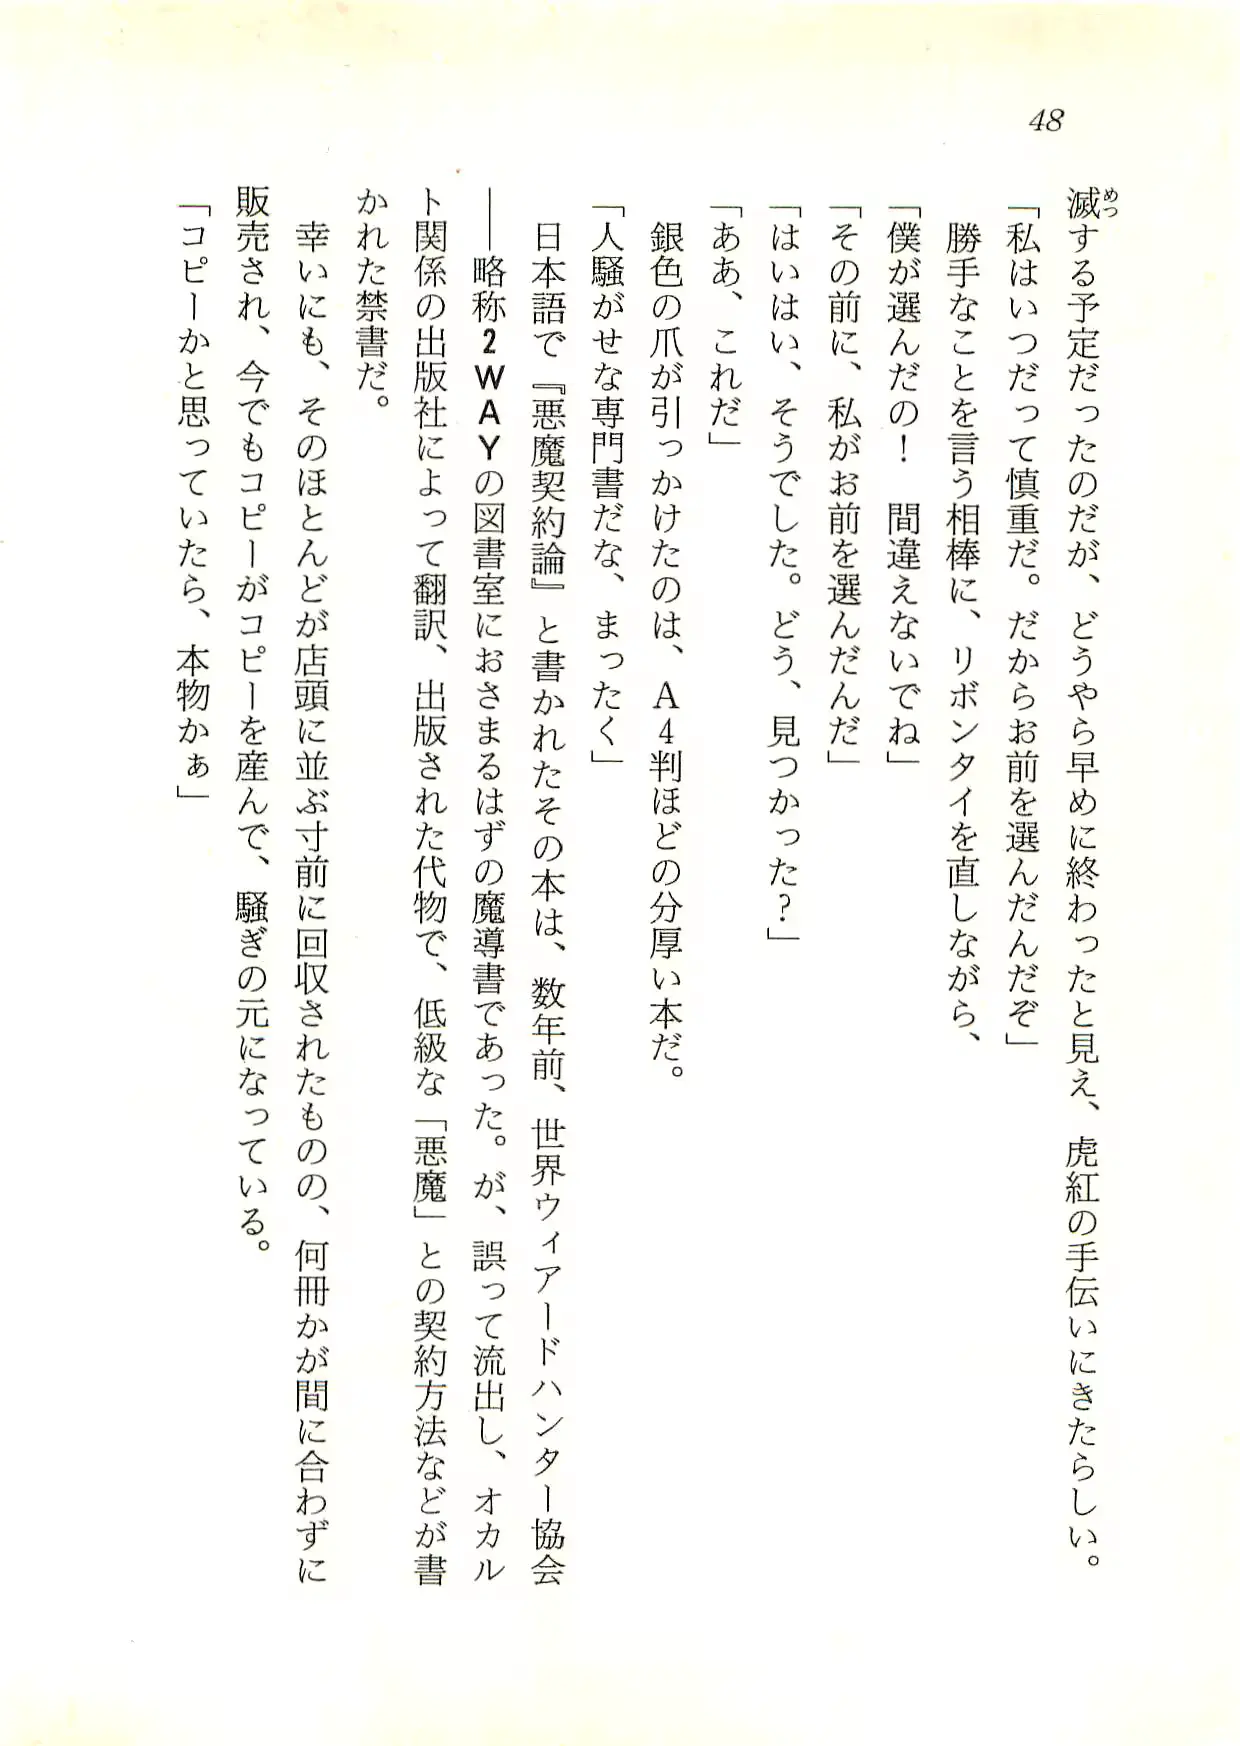 48
滅する予定だったのだが、どうやら早めに終わったと見え、虎紅の手伝いにきたらしい。
めっ
「私はいつだって慎重だ。だからお前を選んだんだぞ」
勝手なことを言う相棒に、リボンタイを直しながら、
「僕が選んだの！　間違えないでね」
「その前に、私がお前を選んだんだ」
「はいはい、そうでした。どう、見つかった？」
「ああ、これだ」
銀色の爪が引っかけたのは、A4判ほどの分厚い本だ。
「人騒がせな専門書だな、まったく」
日本語で『悪魔契約論』と書かれたその本は、数年前、世界ウィアードハンター協会
――略称2WAYの図書室におさまるはずの魔導書であった。が、誤って流出し、オカル
ト関係の出版社によって翻訳、出版された代物で、低級な「悪魔」との契約方法などが書
かれた禁書だ。
幸いにも、そのほとんどが店頭に並ぶ寸前に回収されたものの、何冊かが間に合わずに
販売され、今でもコピーがコピーを産んで、騒ぎの元になっている。
「コピーかと思っていたら、本物かぁ」